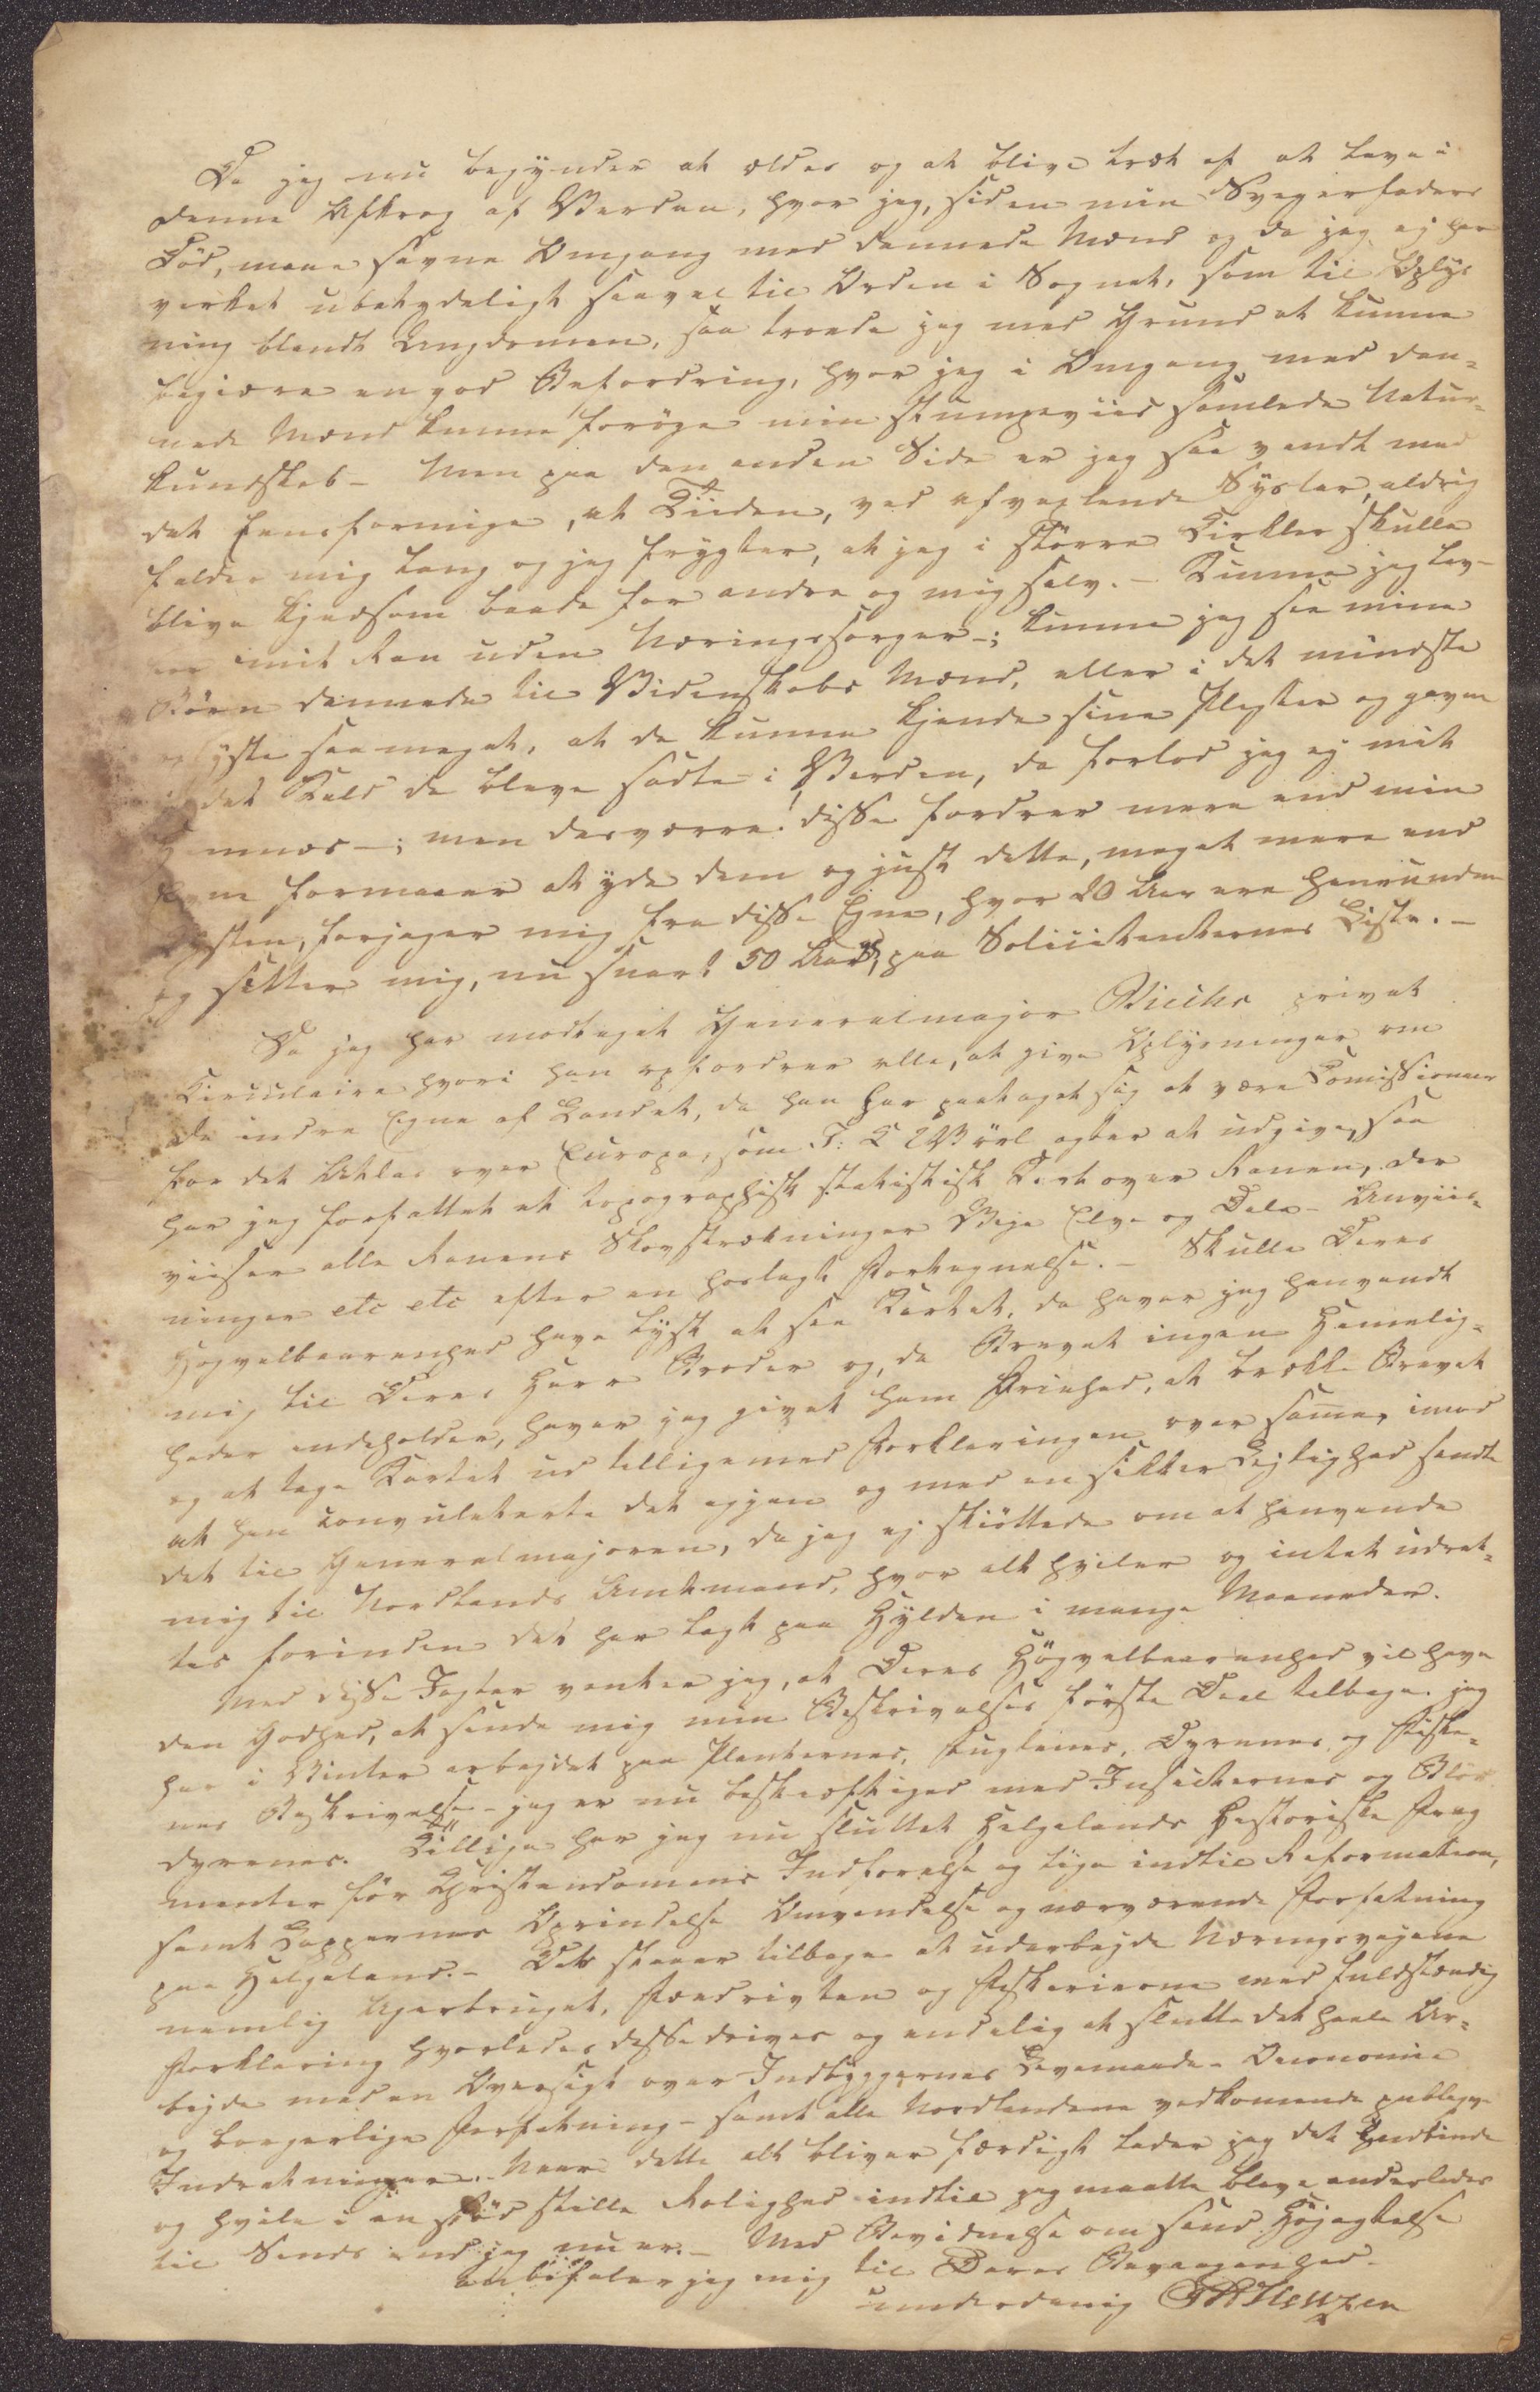 Da jeg nu begynder at ældes og at blive træt af at leve i
denne Afkrog af Verden, hvor jeg, siden min Svegerfaders
Död, maae savne Omgang med dannede Mænd og da jeg ej har
verket ubetydeligt saavel til Orden i Sognet, som til Oplys
ning blandt Ungdommen, saa troede jeg med Grund at kunne
begiære en god Befordring, hvor jeg i Omgang med dan-
nede Mænd kunne foröge min stumpeviis samlede Natur-
kundskab - Men paa den anden Side er jeg saa vandt med
det Eensformige, at Tiiden, ved afvexlende Sysler, aldrig
falder mig lang og jeg frygter, at jeg i större Cirkler skulle
blive kjedsom baade for andre og mig selv. - Kunne jeg lev-
er mit Ran uden Næringssorger -; kunne jeg see mine
Börn dannede til Videnskabs Mænd, eller i det mindste
oplyste saameget, at de kunne kjende sine Pligter og gavne
i det Kald de bleve satte i Verden, da forlod jeg ej mit
Hemnæs -; men desværre! disse fordrer mere end min
Evne formaaer at yde dem og just dette, meget mere end
Lysten, forjager mig fra disse Egne, hvor 20 Aar ere henrundne
og setter mig, nu snart 50 Aar, paa Solicitanternes Liste. -
Da jeg har modtaget Generalmajor Bicks privat
Circulaire hvori han opfordrer alle, at give Oplysninger om
de indre Egne af Landet, da han har paataget sig at være Comissionær
for det Atlas over Europa, som J: E Wörl agter at udgive, saa
har jeg forfattet et topographisk statistisk Kart over Ranen, der
viiser alle Ranens Skovstrækninger Veje Elve og Dale - Anviis-
ninger etc etc efter en hoslagt Fortegnelse. - Skulle Deres
Högvelbaarenhed have Lyst at see Kartet, da haver jeg henvendt
mig til Deres Herr Broder og, da Brevet ingen Hemelig-
heder indeholder, haver jeg givet ham Frihed, at brække Brevet
og at tage Kartet ud tilligemed Forklaringen over same, imod
at han convuleterte det igjen og med en sikker Lejlighed sendte
det til Generalmajoren, da jeg ej skiöttede om at henvende
mig til Nordlands Amtmand, hvor alt hviler og intet udret-
tes forinden det har lagt paa Hylden i mange Maaneder.
Med disse Jagter venter jeg, at Deres Högvelbaarenhed vil have
den Godhed, at sende mig min Beskrivelses förste Deel tilbage. jeg
har i Vinter arbejdet paa Planternes, Fuglenes, Dyrenes og Fiske-
nes Beskrivelse - jeg er nu beskæftiget med Insecternes og Blöd
dyrenes. Tillige har jeg nu sluttet Helgelands Historiske Frag
menter för Christendomens Indförelse og lige indtil Reformation,
samt Lappernes Oprindelse Omvendelse og nærværende Forfatning
paa Helgeland. - Dette staaer tilbage at udarbejde Næringsvejene
nemlig Agerbruget, Fædrivten og Fiskerierne med fuldstændig
Forklaring hvorledes disse drives og endelig at slutte det heele Ar-
bejde med en Oversigt over Indbyggernes Levemaade - Oeconomie
og borgerlige Forfatning - samt alle Nordlandene vedkomende publiqve
Indretninger. - Naar dette alt bliver færdigt lader jeg det Indbinde
og hvile i en stille Rolighed indtil jeg maatte blive anderledes
til Sinds end jeg nu er. - Med Bevidnelse om sand Höjagtelse
anbefaler jeg mig til Deres Bevaagenhed -
underdanig Heltzen